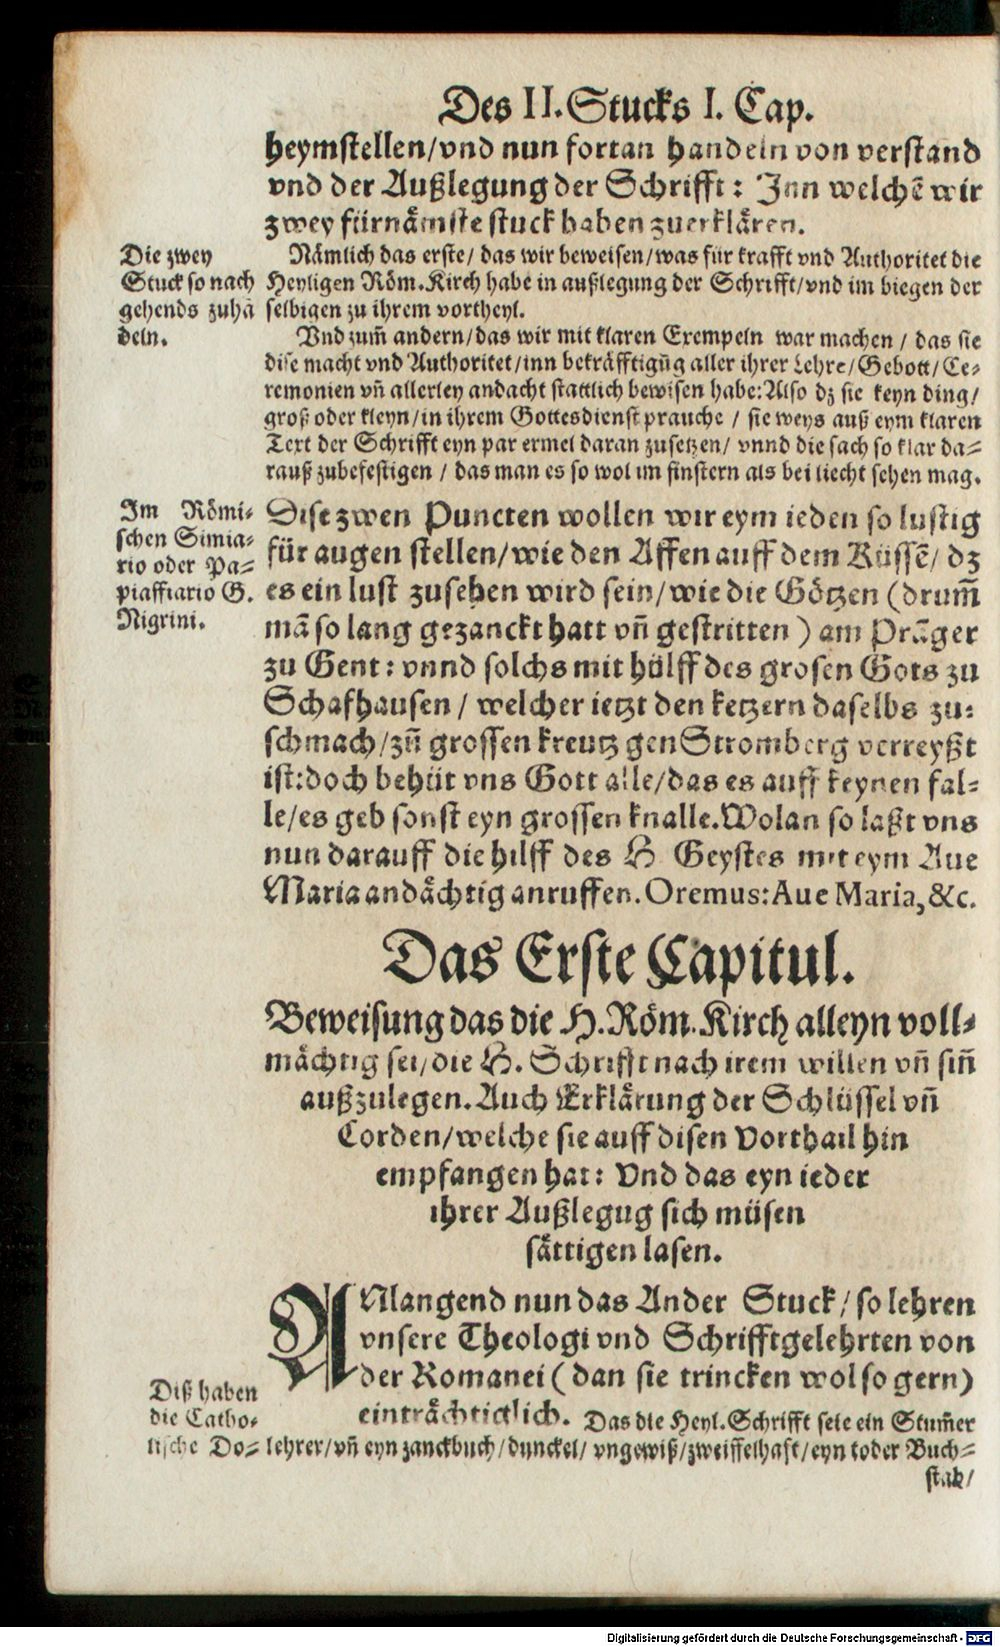 Des II. Stucks I. Cap.
heymstellen/vnd nun fortan handeln von verstand
vnd der Außlegung der Schrifft: Jnn welchē wir
zwey fürnämste stuck haben zuerklären.
Die zwey
Stuck so nach
gehends zuhā
deln.
Nämlich das erste/ das wir beweisen/was für krafft vnd Authoritet die
Heyligen Röm. Kirch habe in außlegung der Schrifft/vnd im biegen der
selbigen zu ihrem vortheyl.
Vnd zum̄ andern/das wir mit klaren Exempeln war machen / das sie
dise macht vnd Authoritet/inn bekräfftigūg aller ihrer Lehre/Gebott/Ce-
remonien vn̄ allerley andacht stattlich bewisen habe: Also dz sie keyn ding/
groß oder kleyn/in ihrem Gottesdienst prauche / sie weys auß eym klaren
Text der Schrifft eyn par ermel daran zusetzen/ vnnd die sach so klar da-
rauß zubefestigen / das man es so wol im finstern als bei liecht sehen mag.
Im Römi-
schen Simia-
rio oder Pa-
piaffiario G.
Nigrini.
Dise zwen Puncten wollen wir eym ieden so lustig
für augen stellen/wie den Affen auff dem Küssē/ dz
es ein lust zusehen wird sein/wie die Götzen (drum̄
mā so lang gezanckt hatt vn̄ gestritten) am Prāger
zu Gent: vnnd solchs mit hülff des grosen Gots zu
Schafhausen / welcher ietzt den ketzern daselbs zu-
schmach/zū grossen kreutz gen Stromberg verreyßt
ist: doch behüt vns Gott alle/das es auff keynen fal-
le/es geb sonst eyn grossen knalle. Wolan so laßt vns
nun darauff die hilff des H Geystes mit eym Aue
Maria andächtig anruffen. Oremus: Aue Maria, &c.
Das Erste Capitul.
Beweisung das die H. Röm. Kirch alleyn voll-
mächtig sei/die H. Schrifft nach irem willen vn̄ sin̄
außzulegen. Auch Erklärung der Schlüssel vn̄
Corden/welche sie auff disen Vorthail hin
empfangen hat: Vnd das eyn ieder
ihrer Außlegug sich müsen
sättigen lasen.
ANlangend nun das Ander Stuck/so lehren
vnsere Theologi vnd Schrifftgelehrten von
der Romanei (dan sie trincken wol so gern)
einträchtiglich. Das die Heyl. Schrifft seie ein Stum̄er
Diß haben
die Catho-
lische Do-
lehrer/vn̄ eyn zanckbuch/dunckel/ vngewiß/zweiffelhaft/eyn toder Buch-
stab/
Digitalisierung gefördert durch die Deutsche Forschungsgemeinschaft - DFG